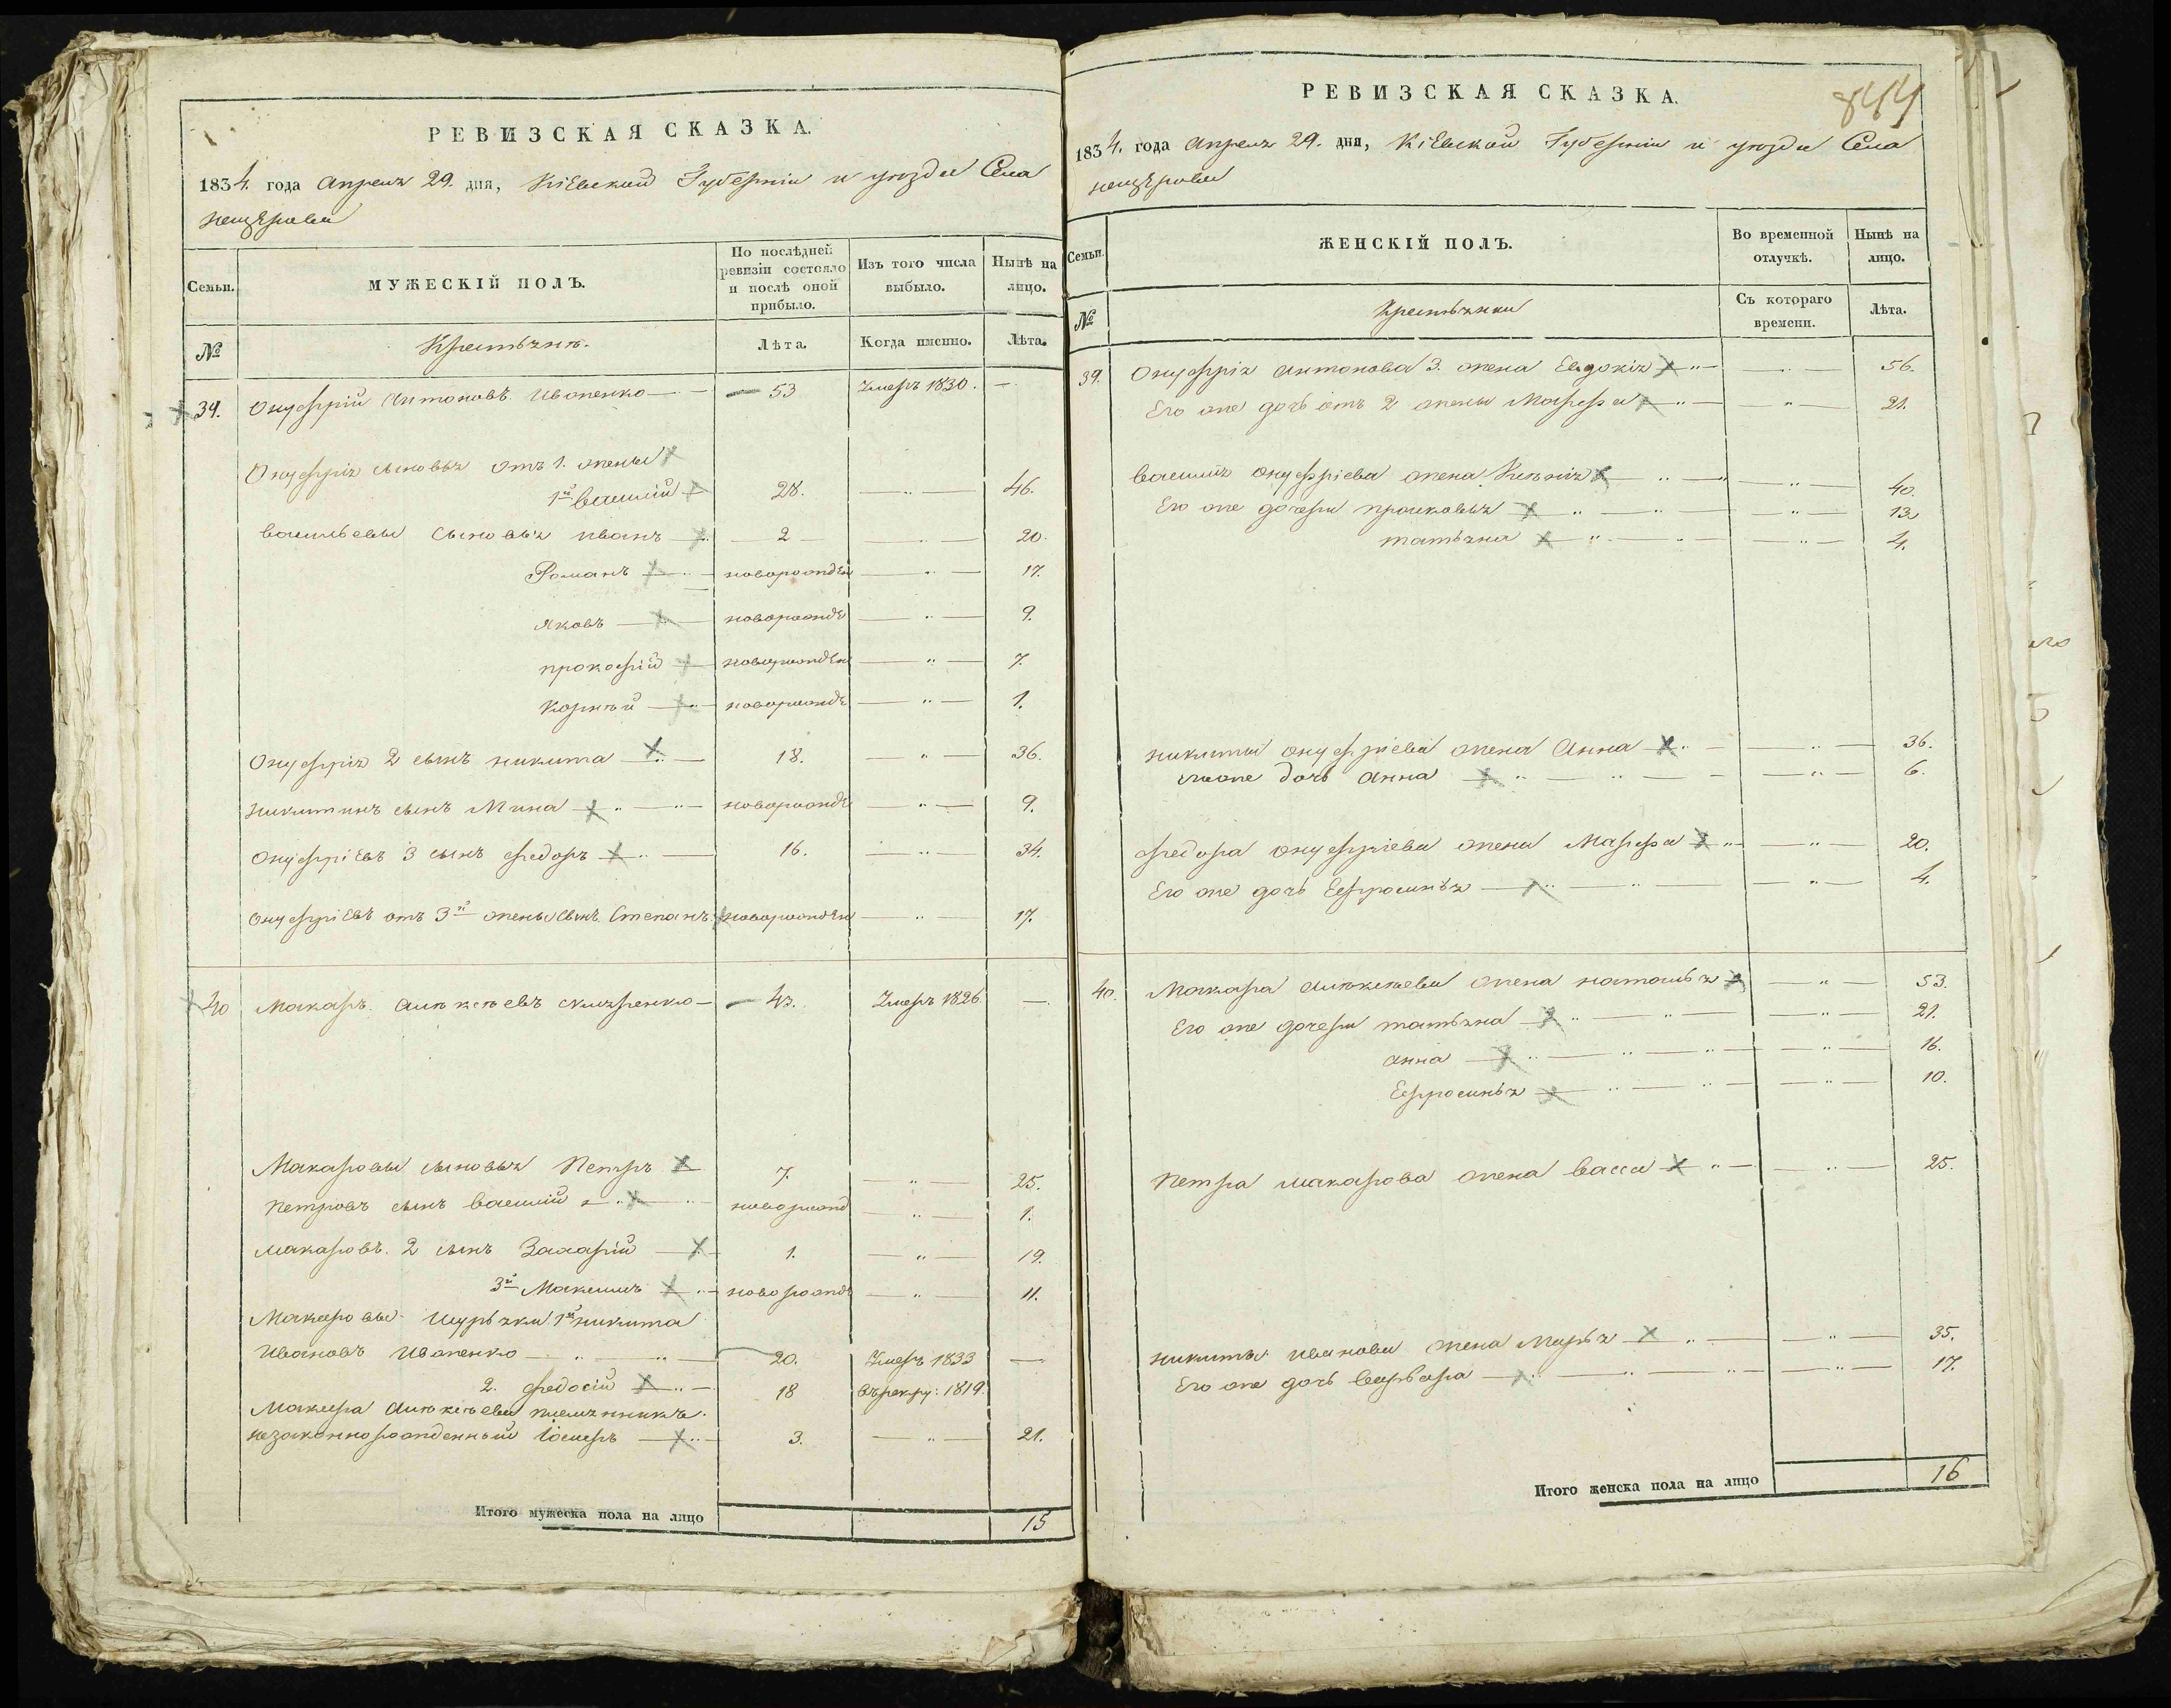 РЕВИЗСКАЯ СКАЗКА.
1834. года Апреля 29. дня, Кіевской Губерніи и уезда Села
нещерова
Семьи.
МУЖЕСКІЙ ПОЛЪ.
По послѣдней ревизіи состояло и послѣ оной прибыло.
Изъ того числа выбыло.
Нынѣ на лицо.
№
Крестьяне.
Лѣта.
Когда именно.
Лѣта.
39. Онуфрій Антоновъ Иваненко 53 Умеръ 1830. —
Онуфрія сыновья отъ 1. жены
1й василій 28. — " — 46.
васильевы сыновья иванъ 2 — " — 20.
Романъ новорожден — " — 17.
яковъ новорожде — " — 9.
прокофій новорожден — " — 7.
Корнѣй новорожде — " — 1.
Онуфрія 2 сынъ никита 18. — " — 36.
никитинъ сынъ Мина новорожде — " — 9.
Онуфріевъ 3 сынъ федоръ 16. — " — 34.
Онуфріевъ отъ 3й жены сынъ Степанъ новорожден — " — 17.
40 Макаръ Алѣксѣевъ 43. Умеръ 1826. —
Макаровы сыновья Петръ 7. — " — 25.
Петровъ сынъ василій новорожд — " — 1.
макаровъ 2 сынъ Захарій 1. — " — 19.
3й Максимъ новорожде — " — 11.
Макаровы Шурьяки 1й никита
Ивановъ Иваненко 20. Умеръ 1833 —
2. федосій 18 въ рекру: 1819.
Макара Алѣксѣева племянникъ
незаконнорожденный Іосифъ 3. — " — 21.
Итого мужеска пола на лицо 15
844
РЕВИЗСКАЯ СКАЗКА.
1834. года Апреля 29. дня, Кіевской Губерніи и уезда Села
нещерова
Семьи.
ЖЕНСКІЙ ПОЛЪ.
Во временной отлучкѣ.
Нынѣ на лицо.
№
Крестьянки
Съ котораго времени.
Лѣта.
39. Онуфрія антонова 3. жена Евдокія — " — 56.
Его же дочь отъ 2 жены Марфа — " — 21.
василія онуфріева жена Ксѣнія — " — 40.
Его же дочери прасковья — " — 13.
татьяна — " — 4.
никиты онуфріева жена Анна — " — 36.
его же дочь анна — " — 6.
федора онуфріева жена Марфа — " — 20.
Его же дочь Ефросинья — " — 4.
40. Макара алѣксѣева жена наталья — " — 53.
Его же дочери татьяна — " — 21.
анна — " — 16.
Ефросинья — " — 10.
Петра макарова жена васса — " — 25.
никиты иванова жена Марья — " — 35.
Его же дочь варвара — " — 17.
Итого женска пола на лицо 16